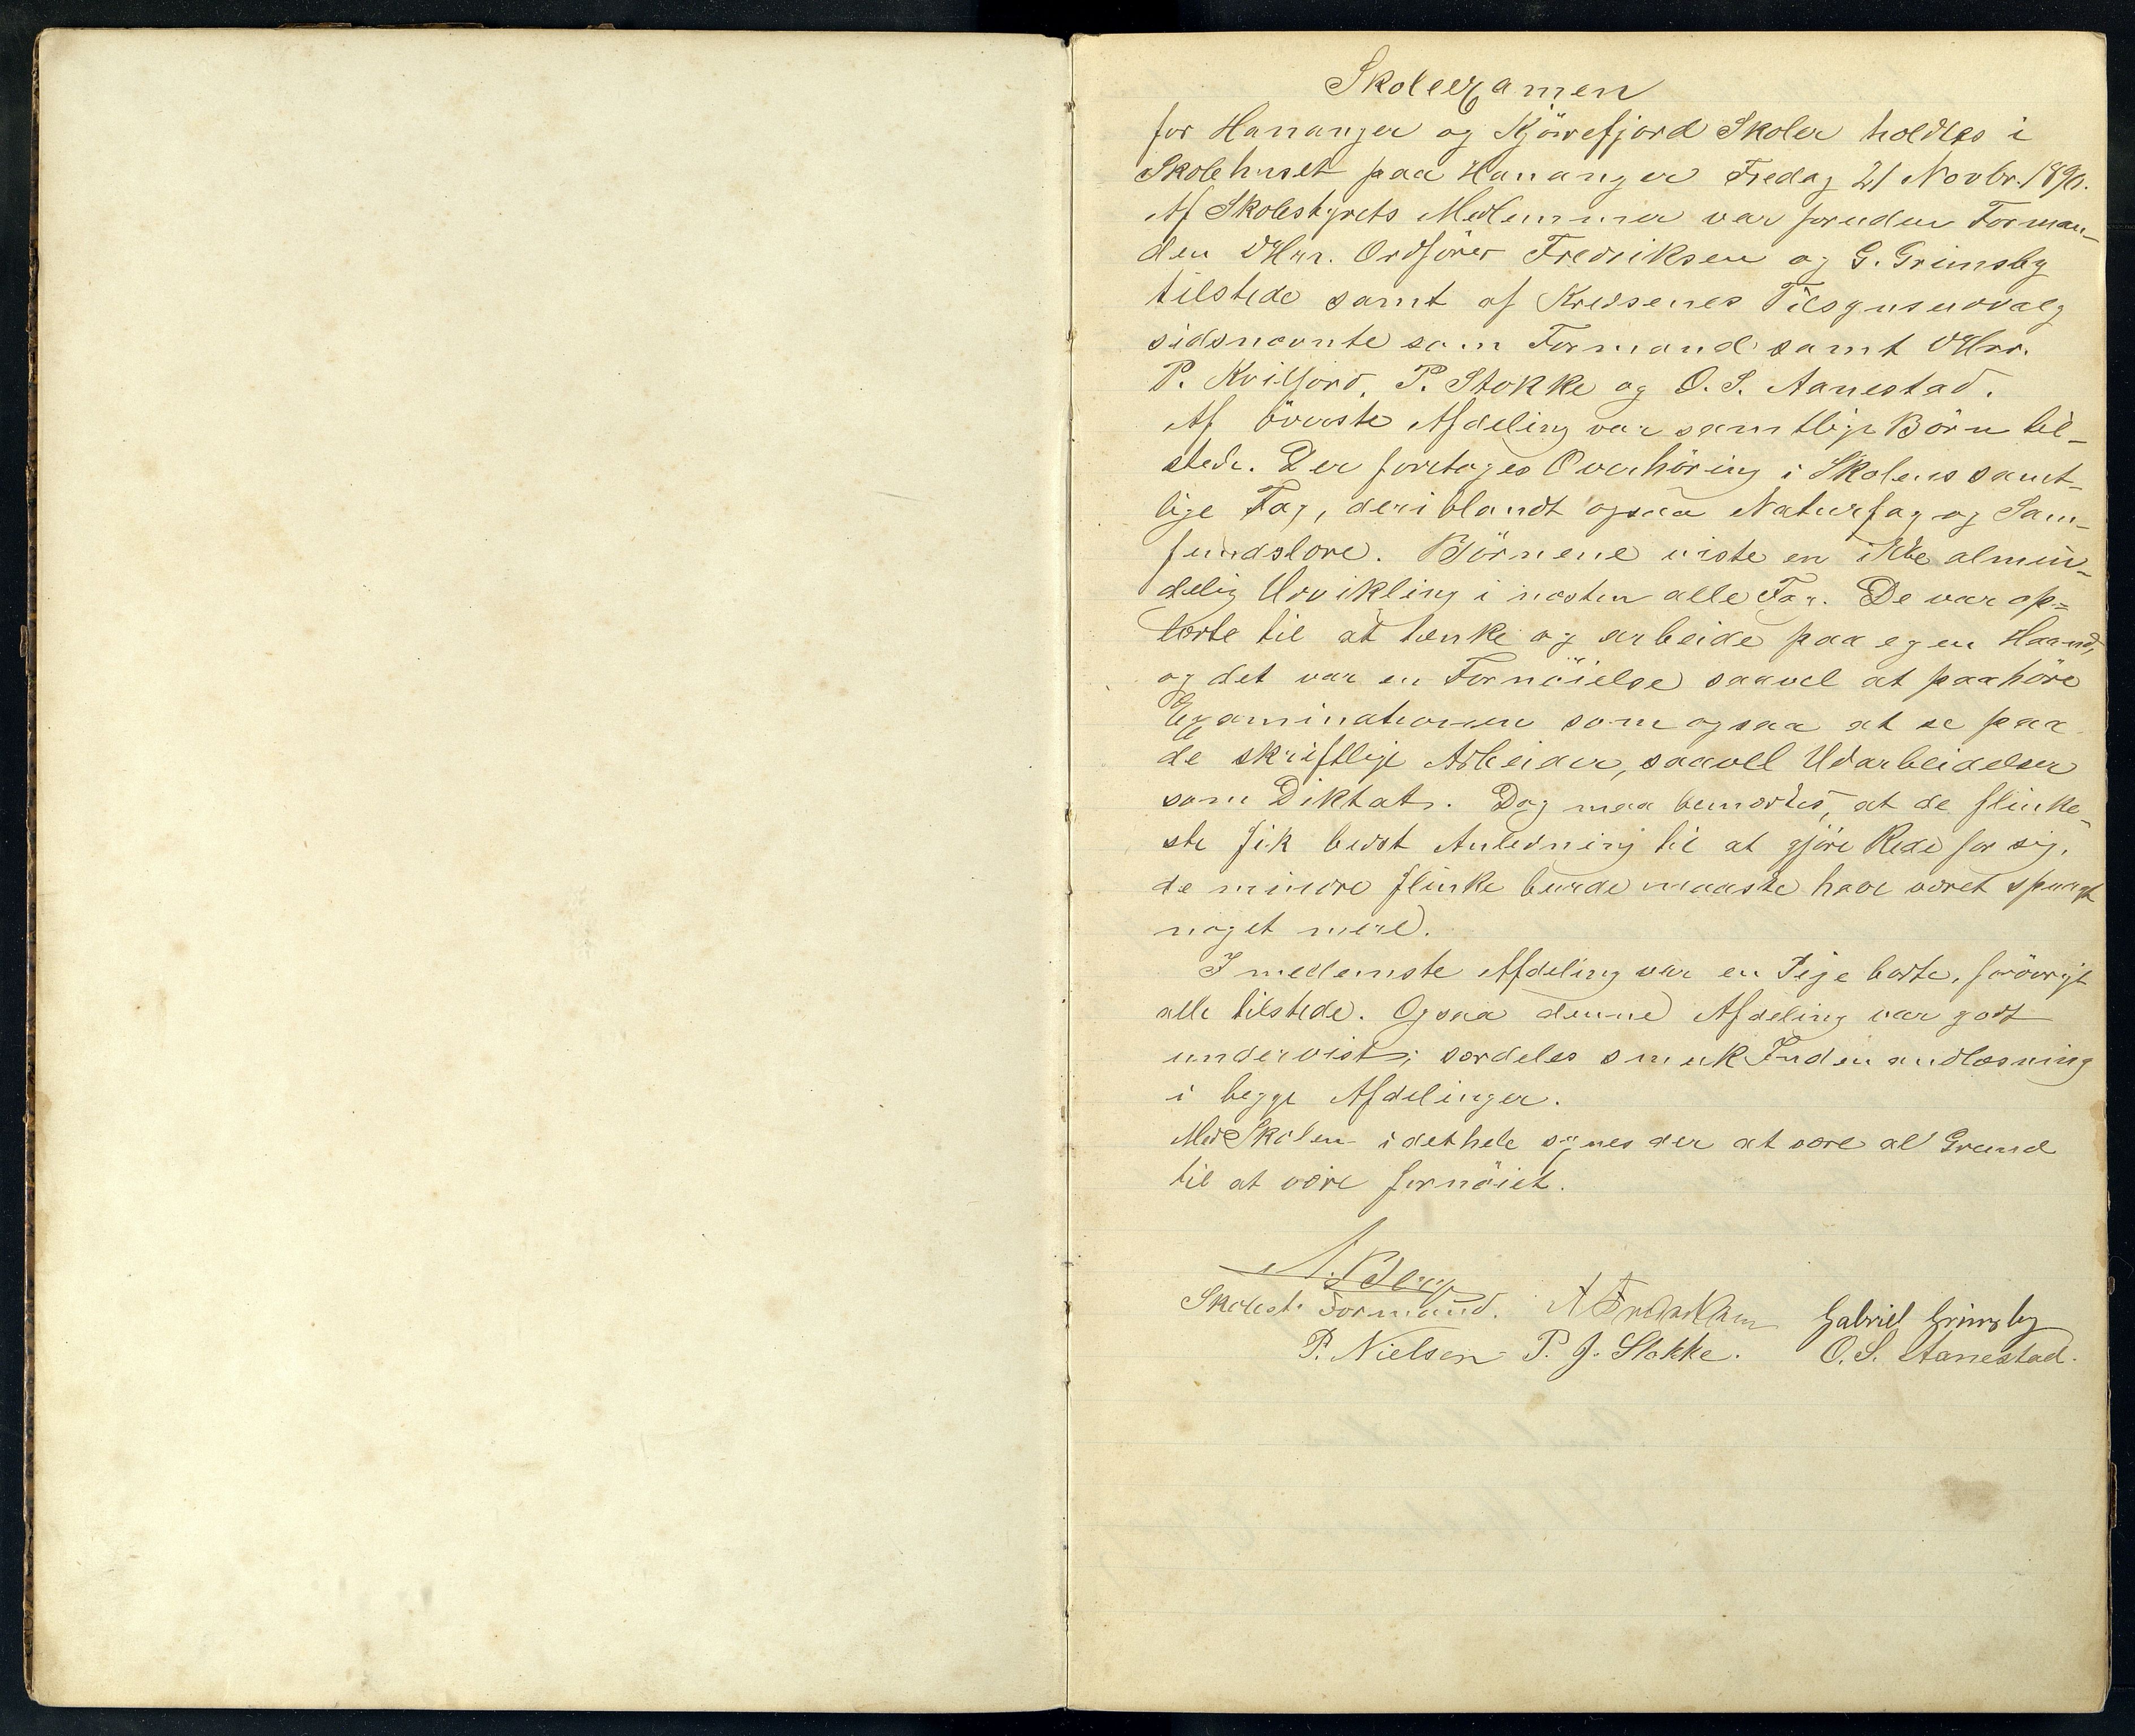 Skoleexamen
for Hananger og Kjörrefjord Skoler holdtes i
Skolehuset paa Hananger Fredag 21 Novbr. 1890.
Af Skolestyrets Medlemmer var foruden Forman-
den DHrr. Ordförer Fredriksen og G. Grimsby
tilstede samt af Kredsenes Tilsynsudvalg
sidsnævnte som Formand samt DHrr.
P. Kviljord, P. Stokke og O. S. Aanestad.
Af överste Afdeling var samtlige Börn til-
stede. Der foretoges Overhöring i Skolens samt-
lige Fag, deriblandt ogsaa Naturfag og Sam-
fundslære. Börnene viste en ikke almin-
delig Udvikling i næsten alle Fag. De var op-
lærte til at tænke og arbeide paa egen Haand,
og det var en Fornöielse saavel at paahöre
Examinationen som ogsaa at se paa
de skriftlige Arbeider, saavell Udarbeidelser
som Diktat. Dog maa bemærkes, at de flinke-
ste fik bedst Anledning til at gjöre Rede for sig,
de mindre flinke burde maaske have været spurgt
noget mere.
I nederste Afdeling var en Pige borte, forövrigt
alle tilstede. Ogsaa denne Afdeling var godt
undervist; særdeles smuk Indenadlæsning
i begge Afdelinger.
Med Skolen i det hele synes der at være al Grund
til at være fornöiet.
Skolest. Formand. A Fredriksen Gabriel Grimsby
P. Nielsen P. J. Stokke. O. S. Aanestad.